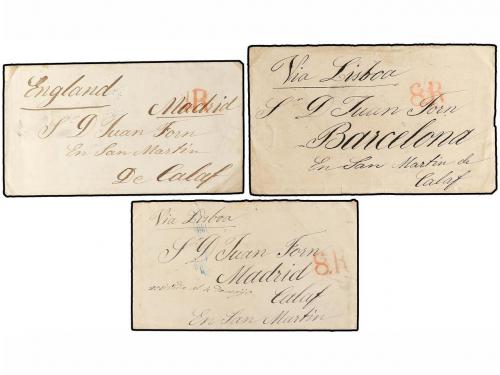 England
Madrid
R
Sr D Juan Forn
En San Martin
De Calaf
Via Lisboa
8R
Sr D Juan Forn
Barcelona
En San Martin de
Calaf
Via Lisboa
Sr D Juan Forn
8.R
Madrid
Calaf
En San Martin